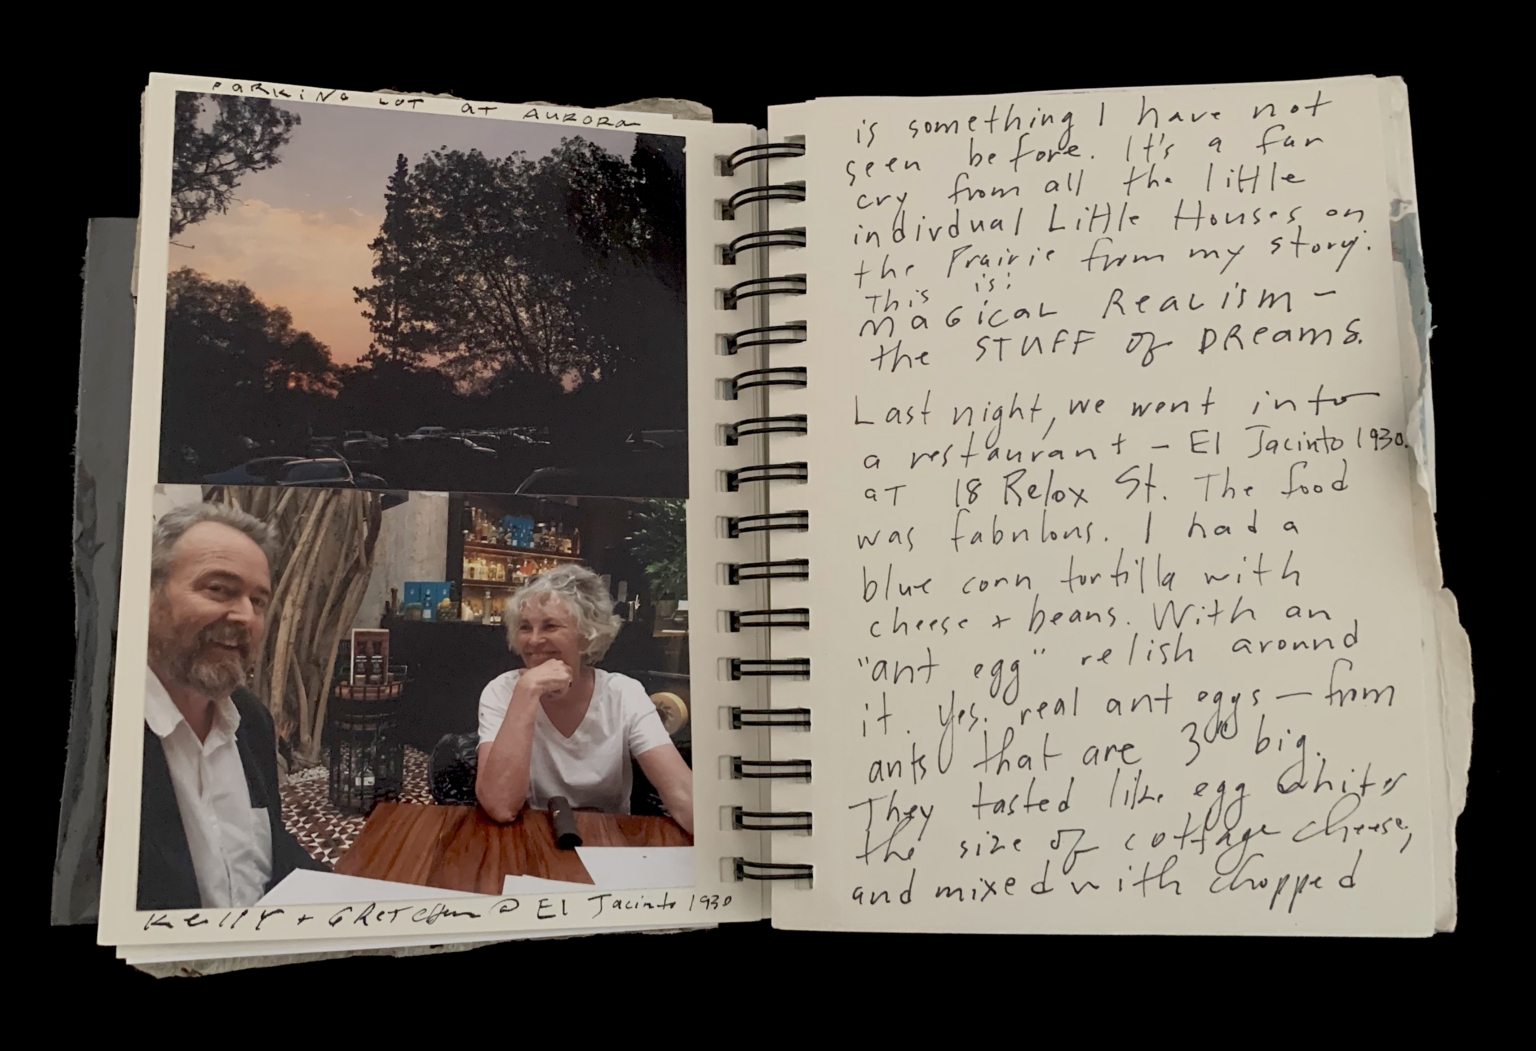 PARKING LOT AT AURORA
KELLY + GRETCHEN @ El Jacinto 1930
is something I have not
seen before. It's a far
cry from all the little
indivdual Little Houses on
the Prairie from my story.
This is:
MAGICAL REALISM –
the STUFF OF DREAMS.
Last night, we went into
a restaurant – El Jacinto 1930.
AT 18 Relox St. The food
was fabulous. I had a
blue corn tortilla with
cheese + beans. With an
"ant egg" relish around
it. Yes. real ant eggs – from
ants that are 3" big.
They tasted like egg whites
the size of cottage cheese,
and mixed with chopped